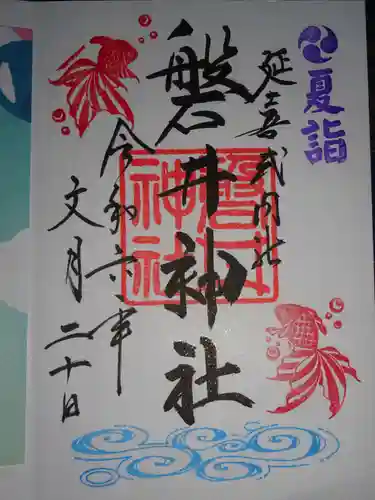 夏詣
延喜式内社
磐井神社
磐井
神社
令和六年
文月二十日